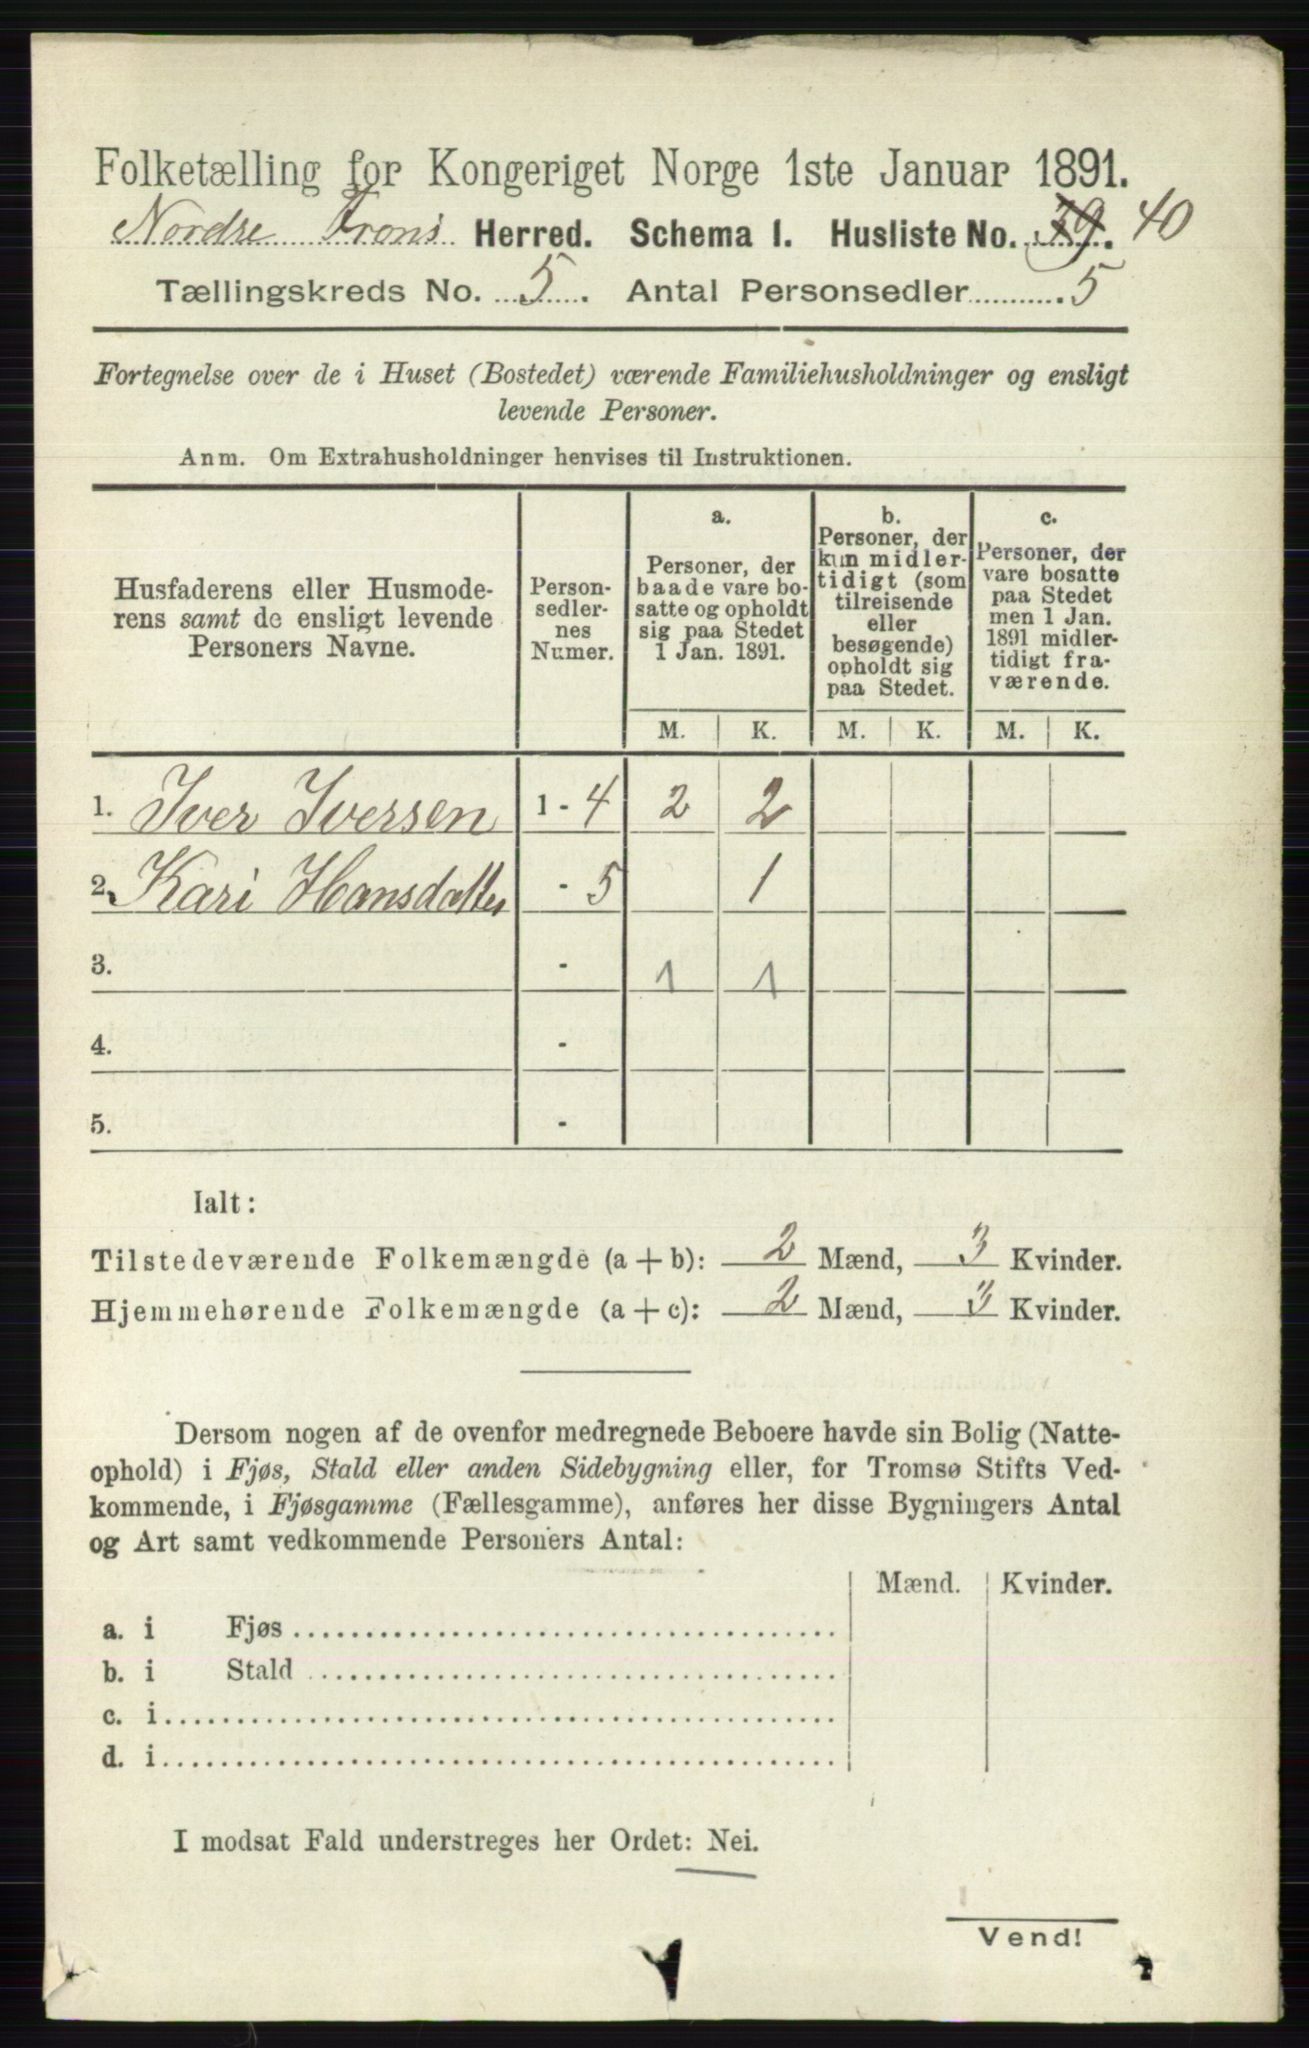 Folketælling for Kongeriget Norge 1ste Januar 1891.
Nordre Frons Herred. Schema I. Husliste No. 39. 40
Tællingskreds No. 5. Antal Personsedler 5
Fortegnelse over de i Huset (Bostedet) værende Familiehusholdninger og ensligt
levende Personer.
Anm. Om Extrahusholdninger henvises til Instruktionen.
Husfaderens eller Husmode-
rens samt de ensligt levende
Personers Navne.
Person-
sedler-
nes
Numer.
a.
Personer, der
baade vare bo-
satte og opholdt
sig paa Stedet
1 Jan. 1891.
b.
Personer, der
kun midler-
tidigt (som
tilreisende
eller
besøgende)
opholdt sig
paa Stedet.
c.
Personer, der
vare bosatte
paa Stedet
men 1 Jan.
1891 midler-
tidigt fra-
værende.
M. K. M. K. M. K.
1. Iver Iversen 1 - 4 2 2
2. Kari Hansdatter - 5 1
3. - 1 1
4. -
5. -
Ialt:
Tilstedeværende Folkemængde (a + b): 2 Mænd, 3 Kvinder.
Hjemmehørende Folkemængde (a + c): 2 Mænd, 3 Kvinder.
Dersom nogen af de ovenfor medregnede Beboere havde sin Bolig (Natte-
ophold) i Fjøs, Stald eller anden Sidebygning eller, for Tromsø Stifts Ved-
kommende, i Fjøsgamme (Fællesgamme), anføres her disse Bygningers Antal
og Art samt vedkommende Personers Antal:
Mænd. Kvinder.
a. i Fjøs
b. i Stald
c. i
d. i
I modsat Fald understreges her Ordet: Nei.
Vend!